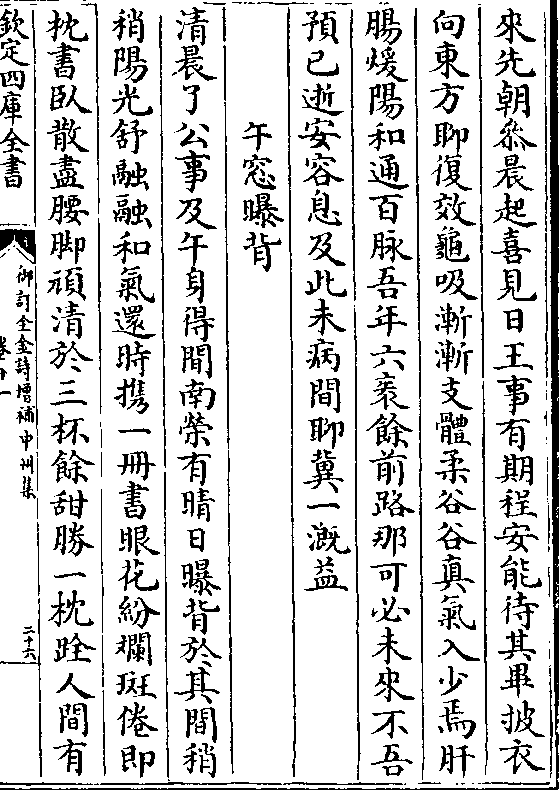 來先朝飡晨起喜見日王事有期程安能待其畢披衣
向東方聊復效龜吸漸漸支體柔谷谷真氣入少焉肝
腸煖陽和通百脉吾年六袠餘前路那可必未來不吾
預已逝安容息及此未病間聊冀一溉益
午窓曝背
清晨了公事及午身得閒南榮有晴日曝背於其間稍
稍陽光舒融融和氣還時携一冊書眼花紛斕斑倦即
枕書臥散盡腰脚頑清於三杯餘甜勝一枕跧人間有
欽定四庫全書
御訂全金詩增補中州集
卷十一
二十六